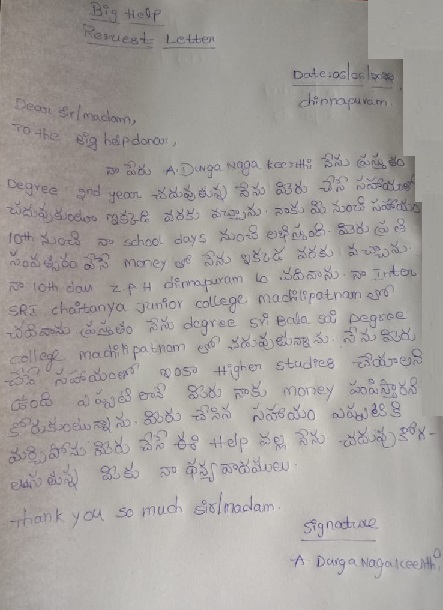 Big Help
Request Letter
Date:
chinnapuram.
Dear Sir/madam,
To the Big help donor,
నా పేరు A. Durga Naga Keerthi నేను ప్రస్తుతం
Degree 2nd year చదువుతున్న నేను మీరు చేసే సహాయంతో
చదువుకుంటూ ఇక్కడి వరకు వచ్చాను. నాకు మీ నుంచి సహాయం
10th నుంచి నా school days నుంచి లభిస్తుంది. మీరు ప్రతి
సంవత్సరం వేసే money తో నేను ఇక్కడ వరకు వచ్చాను.
నా 10th class Z P H chinnapuram లో చదివాను. నా Inter
SRI chaitanya junior college machilipatnam లో
చదివాను ప్రస్తుతం నేను degree sri Bala sai Degree
college machilipatnam లో చదువుతున్నాను. నేను మీరు
చేసే సహాయంతో ఇంకా Higher studies చేయాలని
ఉంది ఎప్పటి లానే మీరు నాకు money పంపిస్తారని
కోరుకుంటున్నాను. మీరు చేసిన సహాయం ఎప్పటికీ
మర్చిపోను మీరు చేసే ఈ Help వల్ల నేను చదువుకోగ-
లుగుతున్న మీకు నా ధన్యవాదములు.
Thank you so much Sir/madam.
Signature
A Durga Naga Keerthi